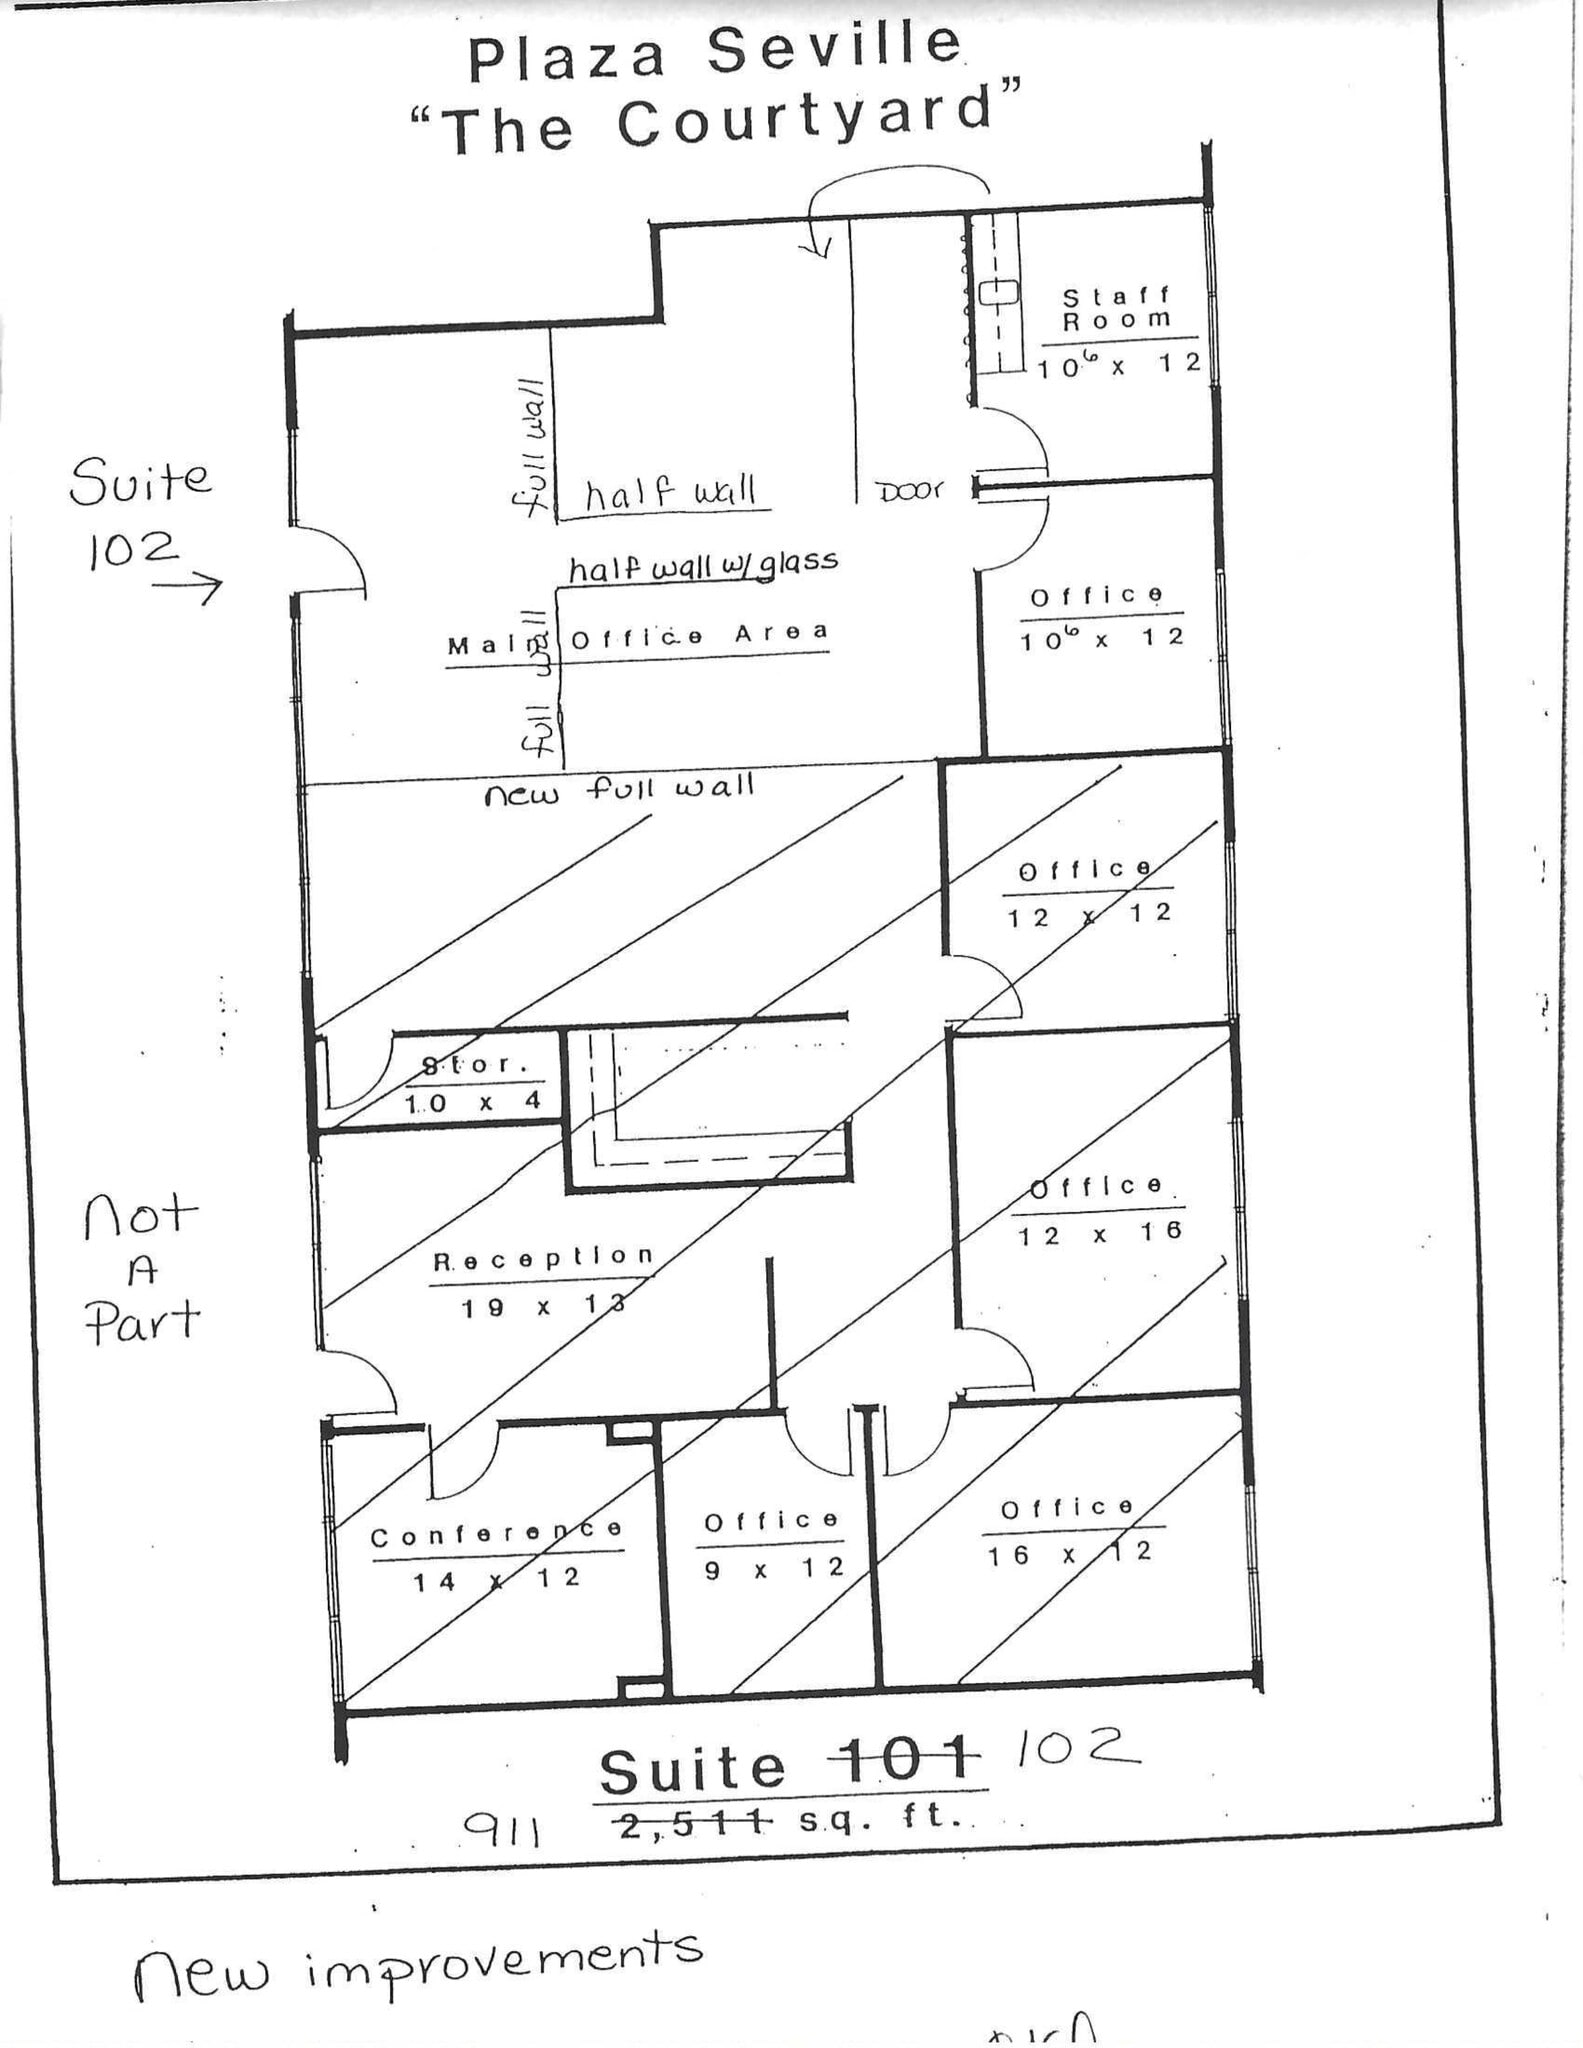 Plaza Seville
“The Courtyard”
Staff
Room
10⁶ x 12
full wall
half wall
DOOR
Suite
102
half wall w/ glass
Office
10⁶ x 12
Main Office Area
full wall
new full wall
Office
12 x 12
Stor.
10 x 4
Office
12 x 16
Not
A
Part
Reception
19 x 13
Conference
14 x 12
Office
9 x 12
Office
16 x 12
Suite 101 102
911 2,511 sq. ft.
New improvements